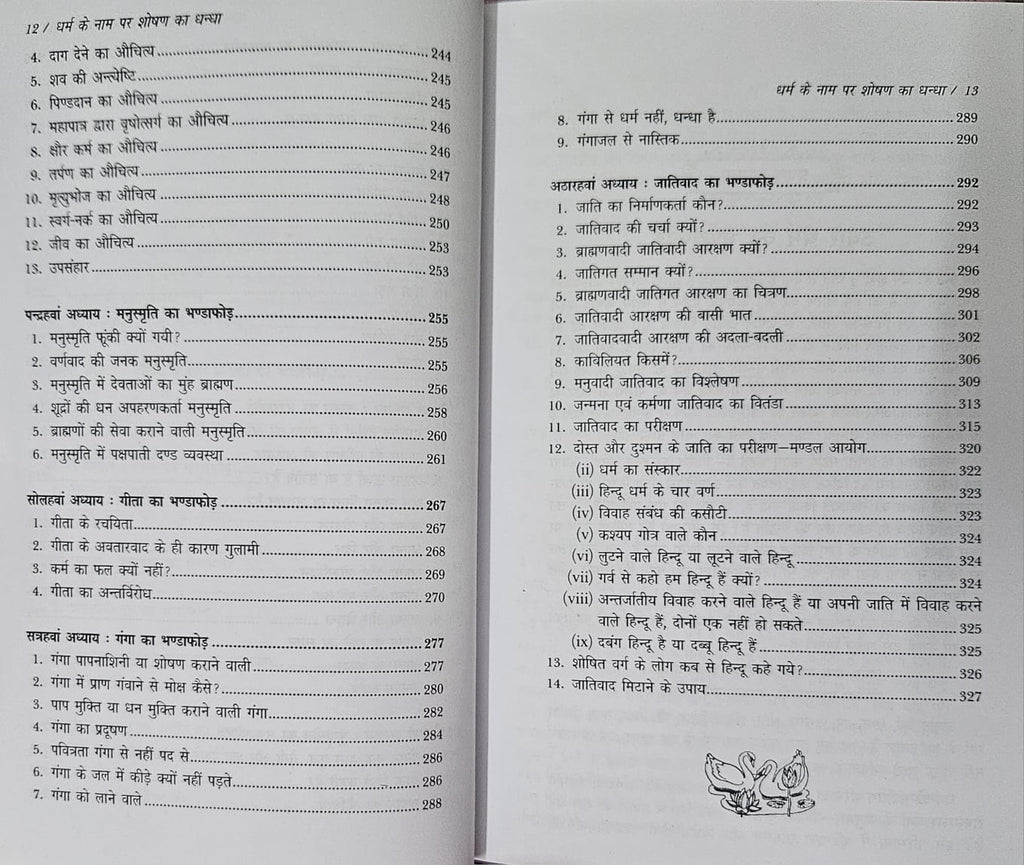 12 / धर्म के नाम पर शोषण का धन्धा
4. दाग देने का औचित्य 244
5. शव की अन्त्येष्टि 245
6. पिण्डदान का औचित्य 245
7. महापात्र द्वारा वृषोत्सर्ग का औचित्य 246
8. क्षौर कर्म का औचित्य 246
9. तर्पण का औचित्य 247
10. मृत्युभोज का औचित्य 248
11. स्वर्ग-नर्क का औचित्य 250
12. जीव का औचित्य 253
13. उपसंहार 253
पन्द्रहवां अध्याय : मनुस्मृति का भण्डाफोड़ 255
1. मनुस्मृति फूंकी क्यों गयी? 255
2. वर्णवाद की जनक मनुस्मृति 255
3. मनुस्मृति में देवताओं का मुंह ब्राह्मण 256
4. शूद्रों की धन अपहरणकर्ता मनुस्मृति 258
5. ब्राह्मणों की सेवा कराने वाली मनुस्मृति 260
6. मनुस्मृति में पक्षपाती दण्ड व्यवस्था 261
सोलहवां अध्याय : गीता का भण्डाफोड़ 267
1. गीता के रचयिता 267
2. गीता के अवतारवाद के ही कारण गुलामी 268
3. कर्म का फल क्यों नहीं? 269
4. गीता का अन्तर्विरोध 270
सत्रहवां अध्याय : गंगा का भण्डाफोड़ 277
1. गंगा पापनाशिनी या शोषण कराने वाली 277
2. गंगा में प्राण गंवाने से मोक्ष कैसे? 280
3. पाप मुक्ति या धन मुक्ति कराने वाली गंगा 282
4. गंगा का प्रदूषण 284
5. पवित्रता गंगा से नहीं पद से 286
6. गंगा के जल में कीड़े क्यों नहीं पड़ते 286
7. गंगा को लाने वाले 288
धर्म के नाम पर शोषण का धन्धा / 13
8. गंगा से धर्म नहीं, धन्धा है 289
9. गंगाजल से नास्तिक 290
अठारहवां अध्याय : जातिवाद का भण्डाफोड़ 292
1. जाति का निर्माणकर्ता कौन? 292
2. जातिवाद की चर्चा क्यों? 293
3. ब्राह्मणवादी जातिवादी आरक्षण क्यों? 294
4. जातिगत सम्मान क्यों? 296
5. ब्राह्मणवादी जातिगत आरक्षण का चित्रण 298
6. जातिवादी आरक्षण की बासी भात 301
7. जातिवादवादी आरक्षण की अदला-बदली 302
8. काबिलियत किसमें? 306
9. मनुवादी जातिवाद का विश्लेषण 309
10. जन्मना एवं कर्मणा जातिवाद का वितंडा 313
11. जातिवाद का परीक्षण 315
12. दोस्त और दुश्मन के जाति का परीक्षण–मण्डल आयोग 320
(ii) धर्म का संस्कार 322
(iii) हिन्दू धर्म के चार वर्ण 323
(iv) विवाह संबंध की कसौटी 323
(v) कश्यप गोत्र वाले कौन 324
(vi) लुटने वाले हिन्दू या लूटने वाले हिन्दू 324
(vii) गर्व से कहो हम हिन्दू हैं क्यों? 324
(viii) अन्तर्जातीय विवाह करने वाले हिन्दू हैं या अपनी जाति में विवाह करने
वाले हिन्दू हैं, दोनों एक नहीं हो सकते 325
(ix) दबंग हिन्दू है या दब्बू हिन्दू हैं 325
13. शोषित वर्ग के लोग कब से हिन्दू कहे गये? 326
14. जातिवाद मिटाने के उपाय 327